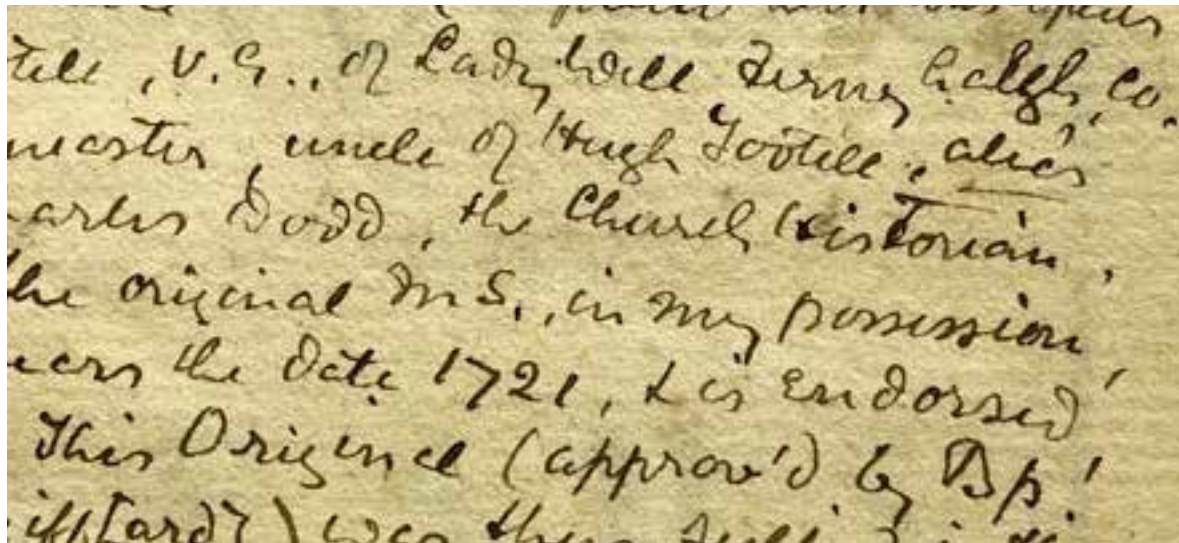 tell, V.G., of Lady Well, Fernyhalgh, Co.
ncaster, uncle of Hugh Tootell, alias
arles Dodd, the Church Historian.
the original MS., in my possession,
ears the date 1721, & is endorsed
This Original (approv'd by Bp.
iffard?) was then